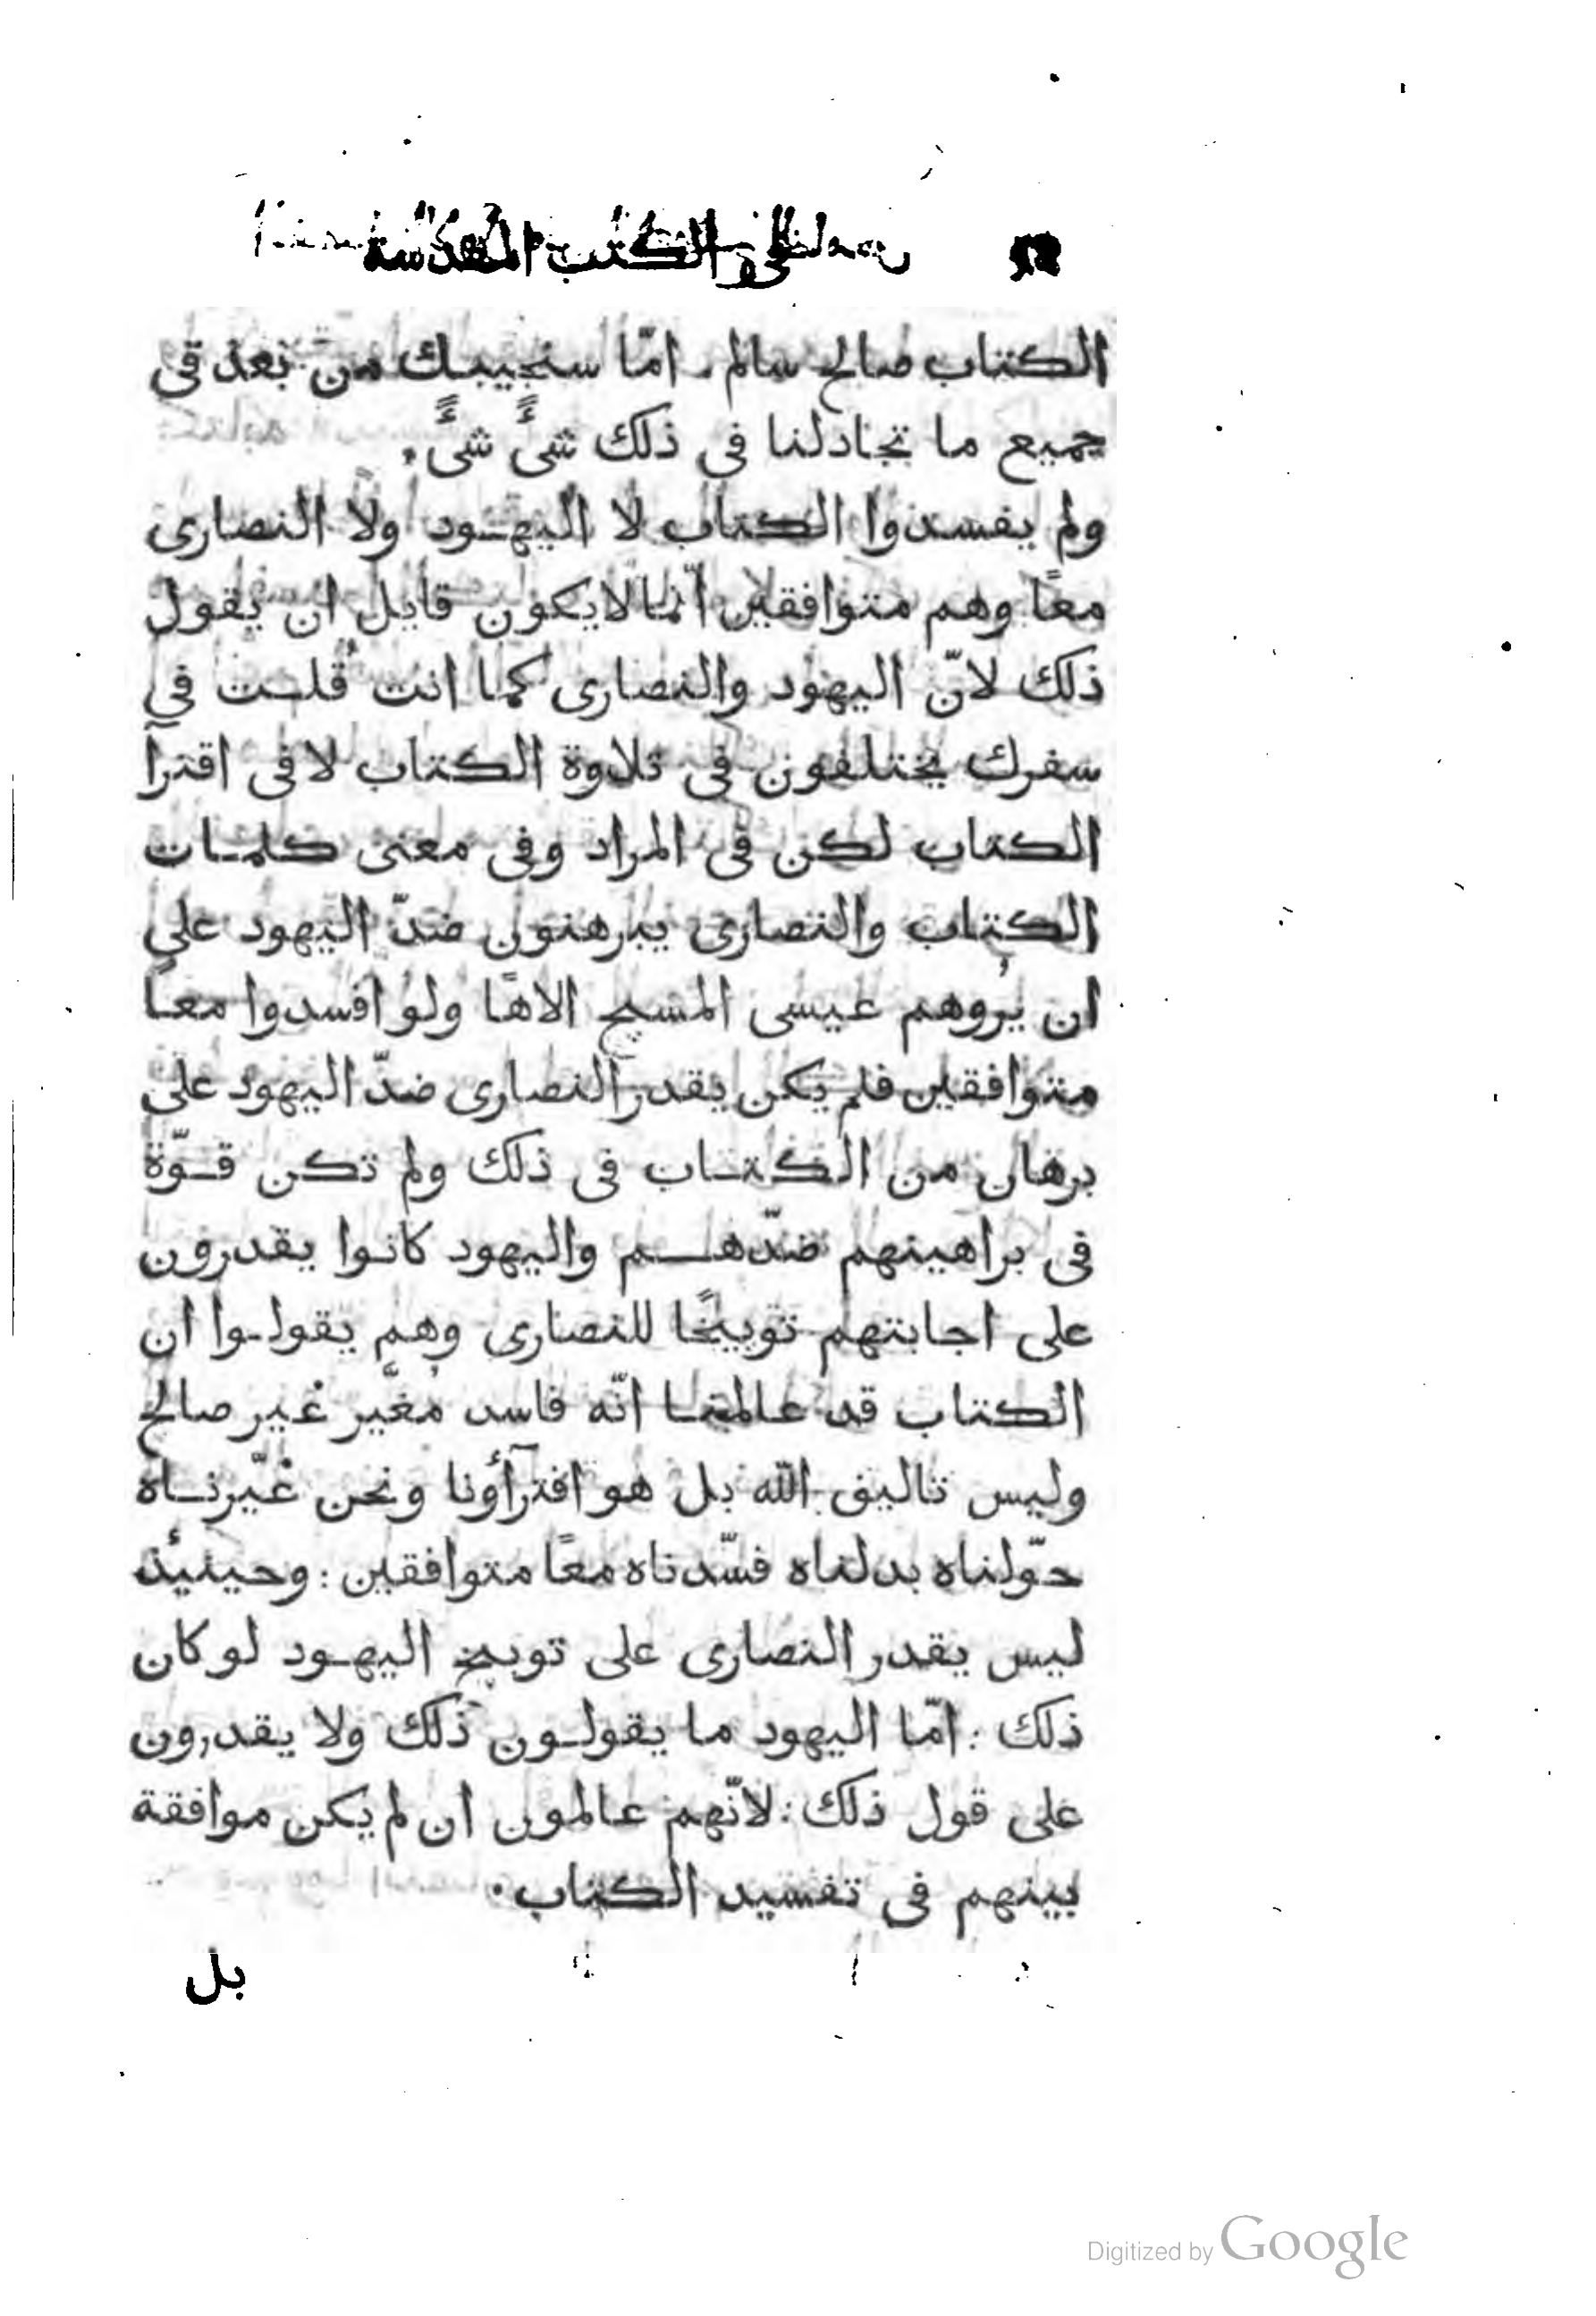 في الكتب المقدسة
الكتاب صالح سالم . امّا سنجيبك من بعد فى
جميع ما تجادلنا فى ذلك شىءً شىءً .
ولم يفسدوا الكتاب لا اليهود ولا النصارى
معًا وهم متوافقين انّما لا يكون قايل ان يقول
ذلك لانّ اليهود والنصارى كما انت قُلت فى
سفرك يختلفون فى تلاوة الكتاب لا فى اقترآ
الكتاب لكن فى المراد وفى معنى كلمات
الكتاب والنصارى يبرهنون ضدّ اليهود على
ان يُروهم عيسى المسيح الاهًا ولو افسدوا معًا
متوافقين فلم يكن يقدر النصارى ضدّ اليهود على
برهان من الكتاب فى ذلك ولم تكن قوّة
فى براهينهم ضدّهم واليهود كانوا يقدرون
على اجابتهم توبيخًا للنصارى وهم يقولوا ان
الكتاب قد عالمنا انّه فاسد مُغيَّر غير صالح
وليس تاليف الله بل هو افترآؤنا ونحن غيّرناه
حوّلناه بدلناه فسّدناه معًا متوافقين : وحينيئذ
ليس يقدر النصارى على توبيخ اليهود لو كان
ذلك : امّا اليهود ما يقولون ذلك ولا يقدرون
على قول ذلك : لانّهم عالمون ان لم يكن موافقة
بينهم فى تفسيد الكتاب .
بل
Digitized by Google